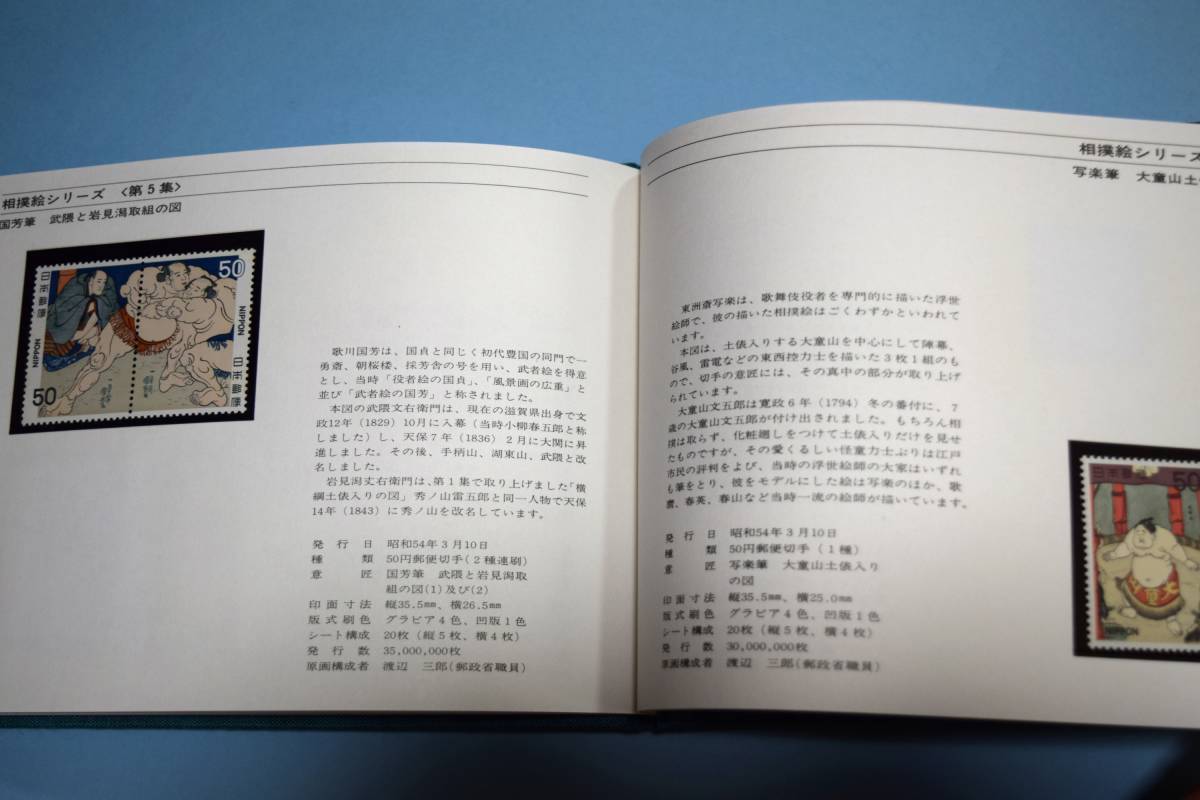 相撲絵シリーズ 〈第5集〉
国芳筆 武隈と岩見潟取組の図
50
日本郵便
NIPPON
50
NIPPON
日本郵便
歌川国芳は、国貞と同じく初代豊国の同門で一
勇斎、朝桜楼、採芳舎の号を用い、武者絵を得意
とし、当時「役者絵の国貞」、「風景画の広重」と
並び「武者絵の国芳」と称されました。
本図の武隈文右衛門は、現在の滋賀県出身で文
政12年(1829)10月に入幕(当時小柳春五郎と称
しました)し、天保7年(1836)2月に大関に昇
進しました。その後、手柄山、湖東山、武隈と改
名しました。
岩見潟丈右衛門は、第1集で取り上げました「横
綱土俵入りの図」秀ノ山雷五郎と同一人物で天保
14年(1843)に秀ノ山を改名しています。
発行日 昭和54年3月10日
種類 50円郵便切手(2種連刷)
意匠 国芳筆 武隈と岩見潟取
組の図(1)及び(2)
印面寸法 縦35.5mm、横26.5mm
版式刷色 グラビア4色、凹版1色
シート構成 20枚(縦5枚、横4枚)
発行数 35,000,000枚
原画構成者 渡辺 三郎(郵政省職員)
相撲絵シリーズ
写楽筆 大童山土
東洲斎写楽は、歌舞伎役者を専門的に描いた浮世
絵師で、彼の描いた相撲絵はごくわずかといわれて
います。
本図は、土俵入りする大童山を中心にして陣幕、
谷風、雷電などの東西控力士を描いた3枚1組のも
ので、切手の意匠には、その真中の部分が取り上げ
られています。
大童山文五郎は寛政6年(1794)冬の番付に、7
歳の大童山文五郎が付け出されました。もちろん相
撲は取らず、化粧廻しをつけて土俵入りだけを見せ
たものですが、その愛くるしい怪童力士ぶりは江戸
市民の評判をよび、当時の浮世絵師の大家はいずれ
も筆をとり、彼をモデルにした絵は写楽のほか、歌
麿、春英、春山など当時一流の絵師が描いています。
発行日 昭和54年3月10日
種類 50円郵便切手(1種)
意匠 写楽筆 大童山土俵入り
の図
印面寸法 縦35.5mm、横25.0mm
版式刷色 グラビア4色、凹版1色
シート構成 20枚(縦5枚、横4枚)
発行数 30,000,000枚
原画構成者 渡辺 三郎(郵政省職員)
日本郵便 50
NIPPON